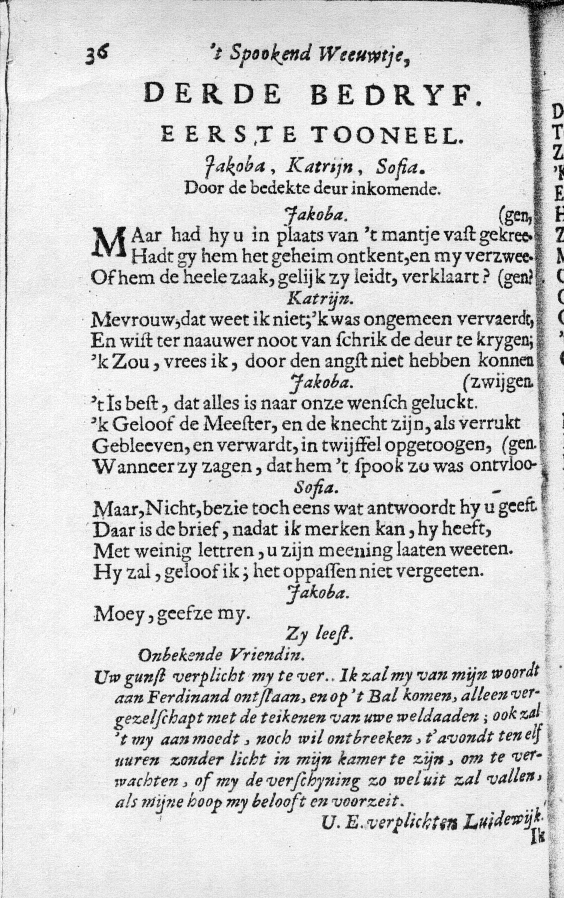 36 't Spookend Weeuwtje,
DERDE BEDRYF.
EERSTE TOONEEL.
Jakoba, Katrijn, Sofia.
Door de bedekte deur inkomende.
Jakoba. (gen,
MAar had hy u in plaats van 't mantje vaſt gekree-
Hadt gy hem het geheim ontkent, en my verzwee-
Of hem de heele zaak, gelijk zy leidt, verklaart? (gen?
Katrijn.
Mevrouw, dat weet ik niet; 'k was ongemeen vervaerdt,
En wiſt ter naauwer noot van ſchrik de deur te krygen;
'k Zou, vrees ik, door den angſt niet hebben konnen
Jakoba. (zwijgen.
't Is beſt, dat alles is naar onze wenſch geluckt.
'k Geloof de Meeſter, en de knecht zijn, als verrukt
Gebleeven, en verwardt, in twijffel opgetoogen, (gen.
Wanneer zy zagen, dat hem 't ſpook zo was ontvloo-
Sofia.
Maar, Nicht, bezie toch eens wat antwoordt hy u geeft.
Daar is de brief, nadat ik merken kan, hy heeft,
Met weinig lettren, u zijn meening laaten weeten.
Hy zal, geloof ik; het oppaſſen niet vergeeten.
Jakoba.
Moey, geefze my.
Zy leeſt.
Onbekende Vriendin.
Uw gunſt verplicht my te ver.. Ik zal my van mijn woordt
aan Ferdinand ontſlaan, en op 't Bal komen, alleen ver-
gezelſchapt met de teikenen van uwe weldaaden; ook zal
't my aan moedt, noch wil ontbreeken, t'avondt ten elf
uuren zonder licht in mijn kamer te zijn, om te ver-
wachten, of my de verſchyning zo wel uit zal vallen,
als mijne hoop my belooft en voorzeit.
U. E. verplichten Luidewijk.
Ik